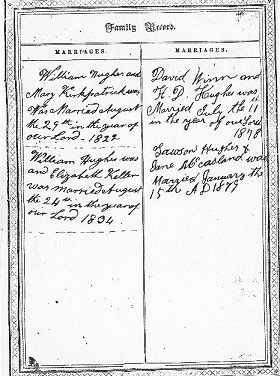 Family Record.
MARRIAGES.
William Hughes and
Mary Kirkpatrick was
Was Married August
the 29th in the year of
our Lord. 1822
William Hughs was
and Elizabeth Keller
was married August
the 24th in the year of
our Lord 1834.
MARRIAGES.
David Winn and
H. D. Hughes was
Married July the 11
in the year of our Lord
1878
Lawson Hughes &
Jane McCasland was
Married January the
15th AD 1879